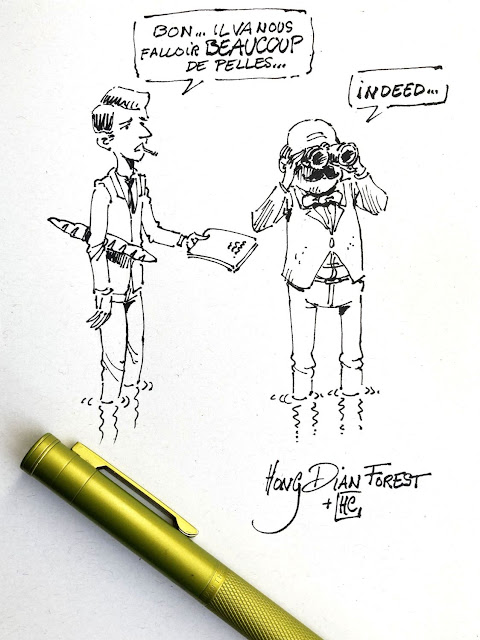 BON... IL VA NOUS
FALLOIR BEAUCOUP
DE PELLES...
INDEED...
HONG DIAN FOREST
+ HC